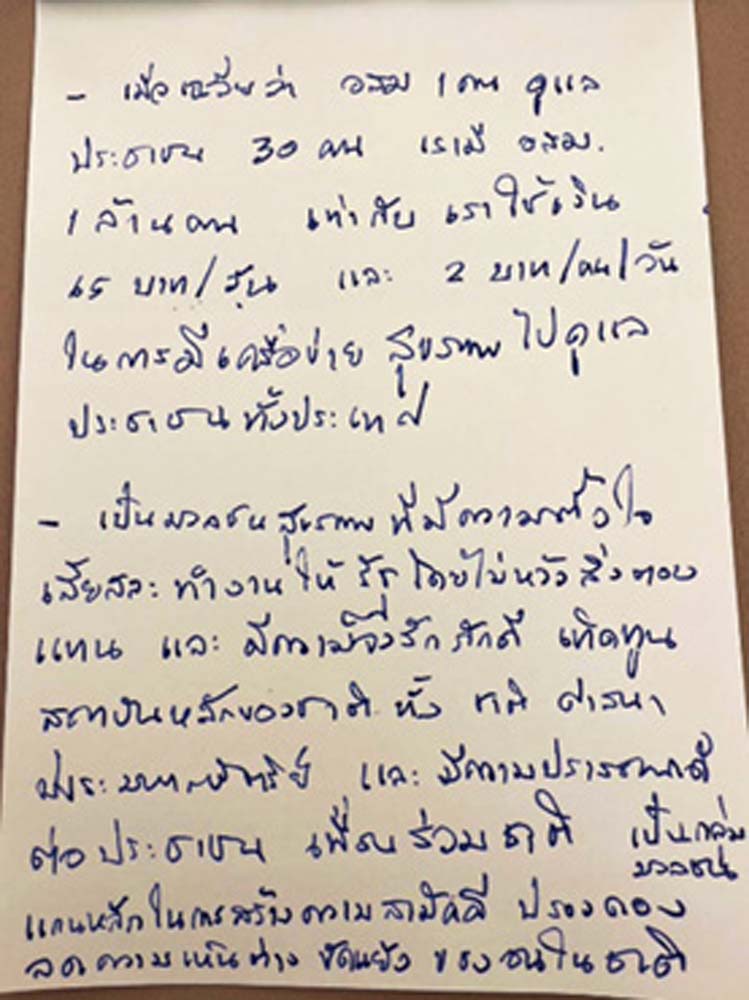 - เมื่อเฉลี่ยว่า อสม 1 คน ดูแล
ประชาชน 30 คน เรามี อสม.
1 ล้านคน เท่ากับ เราใช้เงิน
65 บาท/ และ 2 บาท/คน/วัน
ในการมีเครือข่าย สุขภาพ ไปดูแล
ประชาชนทั้งประเทศ
- เป็นมวลชนสุขภาพ ที่มีความตั้งใจ
เสียสละ ทำงานให้ รัฐ โดยไม่หวัง สิ่งตอบ
แทน และ มีความจงรักภักดี เทิดทูน
สถาบันหลักของชาติ ทั้ง ชาติ ศาสนา
พระมหากษัตริย์ และ มีความปรารถนาดี
ต่อ ประชาชน เพื่อนร่วมชาติ เป็นกลุ่ม
มวลชน
แกนหลักในการสร้างความสามัคคี ปรองดอง
ลดความเห็นต่าง ขัดแย้ง ของคนในชาติ